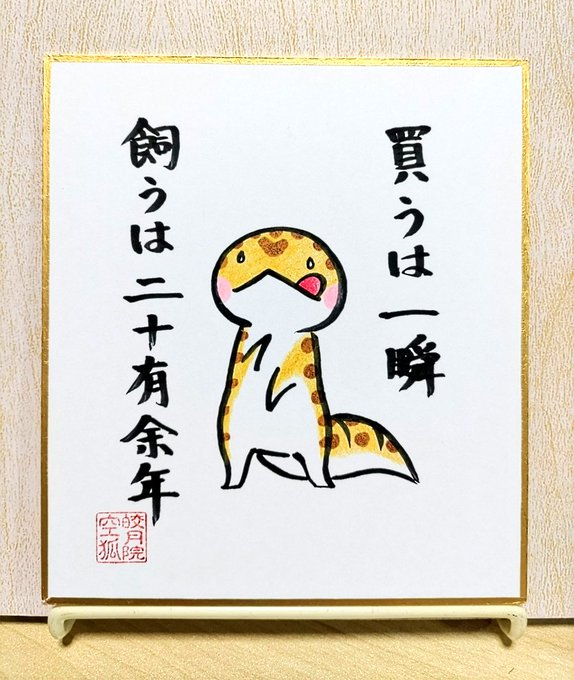 買うは一瞬
飼うは二十有余年
皎月院
空狐